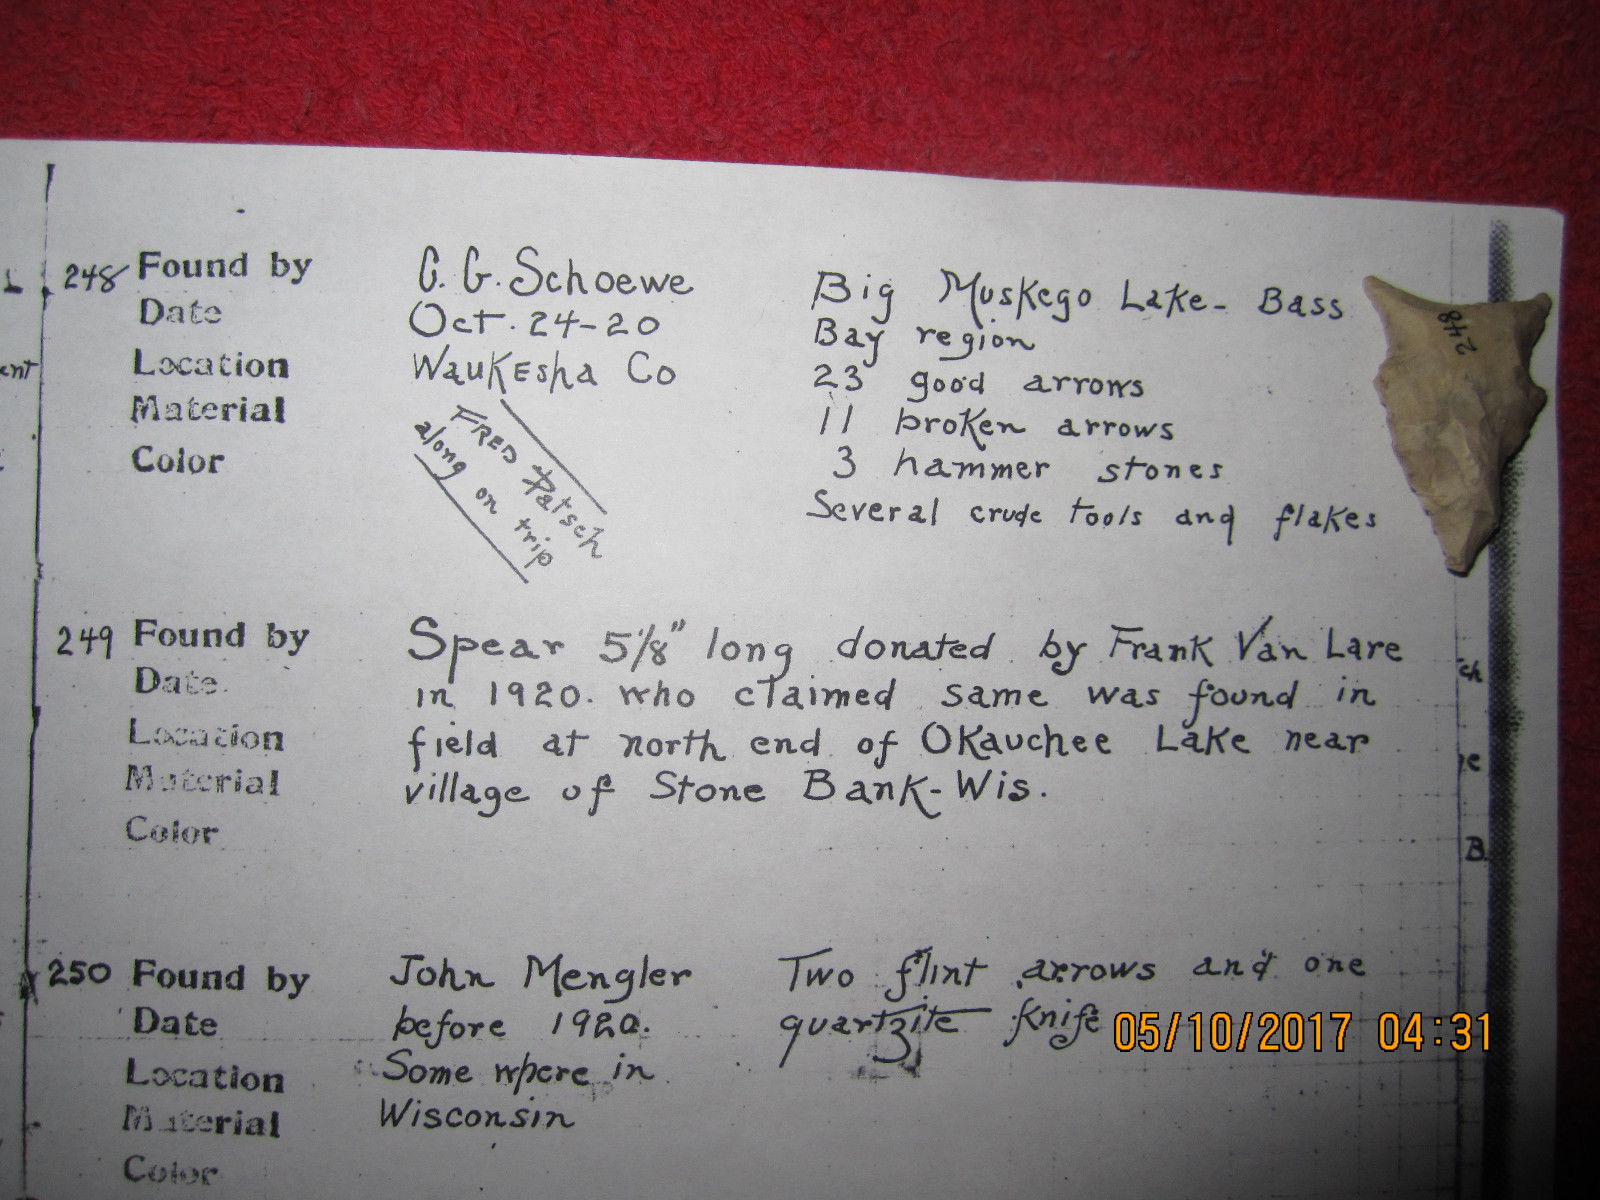 248 Found by C. G. Schoewe
Date Oct. 24-20
Location Waukesha Co
Material
Color
FRED Patsch
along on trip
Big Muskego Lake- Bass
Bay region
23 good arrows
11 broken arrows
3 hammer stones
Several crude tools and flakes
248
249 Found by
Date
Location
Material
Color
Spear 5 1/8" long donated by Frank Van Lare
in 1920. who claimed same was found in
field at north end of Okauchee Lake near
village of Stone Bank-Wis.
250 Found by John Mengler
Date before 1920.
Location Some where in
Material Wisconsin
Color
Two flint arrows and one
quartzite knife
05/10/2017 04:31